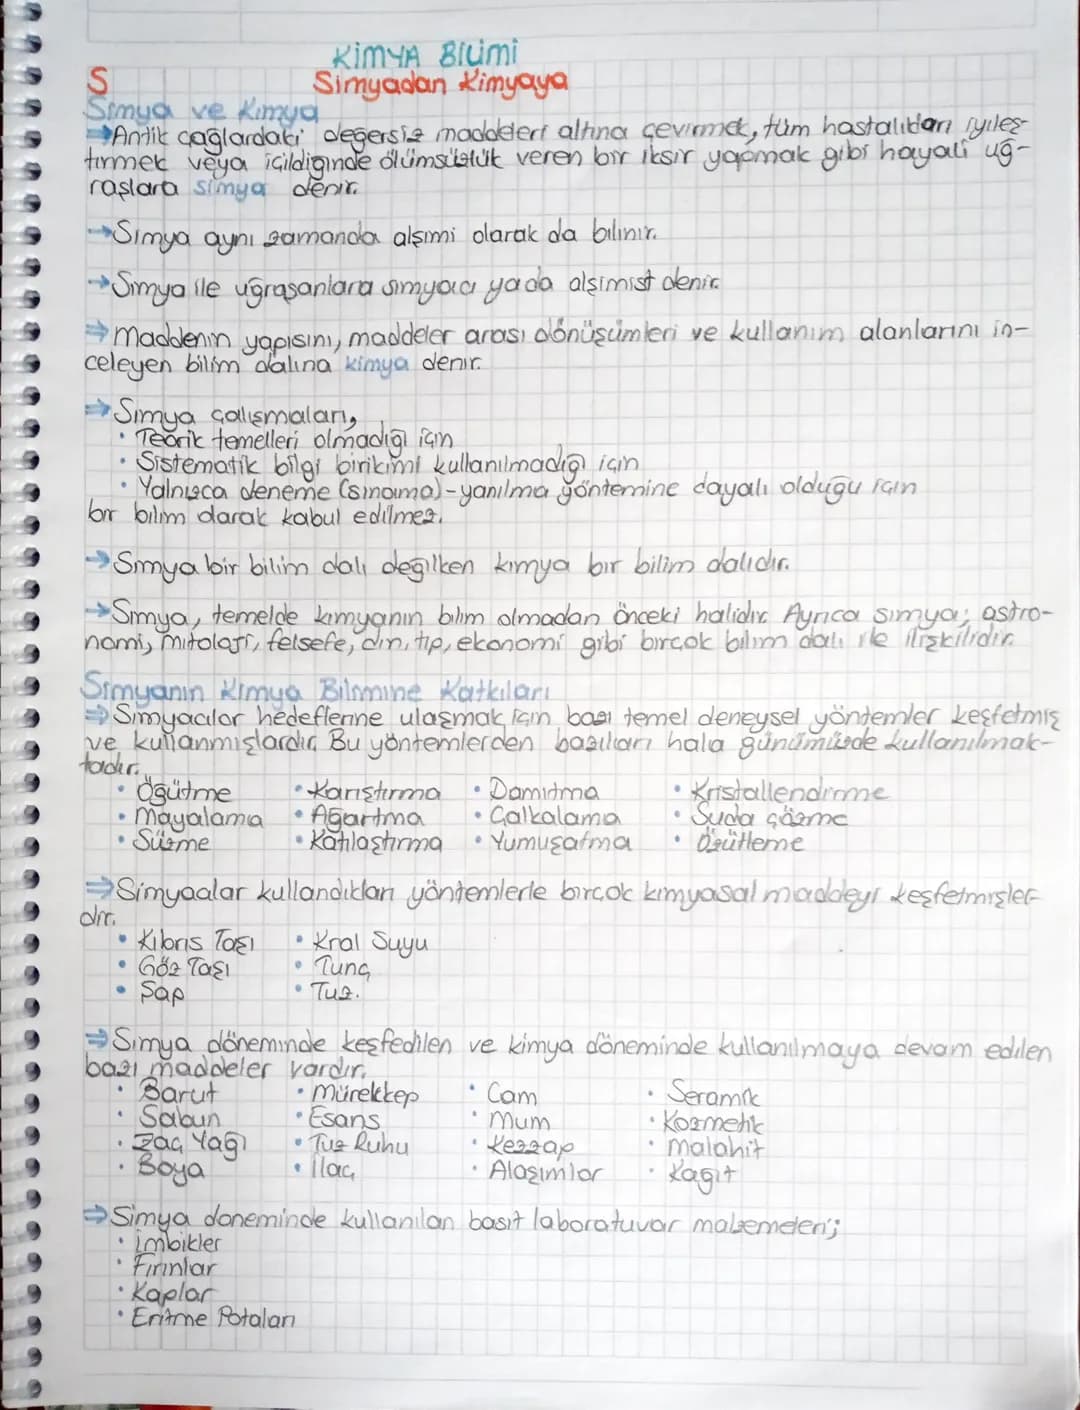 KİMYA Bilimi
S
Simyadan Kimyaya
Simya ve Kimya
→Antik çağlardaki değersiz maddeleri altına çevirmek, tüm hastalıkları iyileş-
tirmek veya içildiğinde ölümsüzlük veren bir iksir yapmak gibi hayali uğ-
raşlara simya denir.
→Simya aynı zamanda alşimi olarak da bilinir.
→Simya ile uğraşanlara simyacı ya da alşimist denir.
⇒Maddenin yapısını, maddeler arası dönüşümleri ve kullanım alanlarını in-
celeyen bilim dalına kimya denir.
⇒Simya çalışmaları,
• Teorik temelleri olmadığı için
• Sistematik bilgi birikimi kullanılmadığı için
• Yalnızca deneme (sınama)-yanılma yöntemine dayalı olduğu için
bir bilim olarak kabul edilmez.
→Simya bir bilim dalı değilken kimya bir bilim dalıdır.
→Simya, temelde kimyanın bilim olmadan önceki halidir. Ayrıca simya; astro-
nomi, mitoloji, felsefe, din, tıp, ekonomi gibi birçok bilim dalı ile ilişkilidir.
Simyanın Kimya Bilimine Katkıları
⇒Simyacılar hedeflerine ulaşmak için bazı temel deneysel yöntemler keşfetmiş
ve kullanmışlardır. Bu yöntemlerden bazıları hala günümüzde kullanılmak-
tadır.
• Öğütme • Karıştırma • Damıtma • Kristallendirme
• Mayalama • Ağartma • Çalkalama • Suda çözme
• Süzme • Katılaştırma • Yumuşatma • Özütleme
⇒Simyacılar kullandıkları yöntemlerle birçok kimyasal maddeyi keşfetmişler-
dir.
• Kıbrıs Taşı • Kral Suyu
• Göz Taşı • Tunç
• Şap • Tuz.
⇒Simya döneminde keşfedilen ve kimya döneminde kullanılmaya devam edilen
bazı maddeler vardır.
• Barut • Mürekkep • Cam • Seramik
• Sabun • Esans • Mum • Kozmetik
• Zaç Yağı • Tuz Ruhu • Kezzap • Malahit
• Boya • İlaç • Alaşımlar • Kağıt
⇒Simya döneminde kullanılan basit laboratuvar malzemeleri;
• İmbikler
• Fırınlar
• Kaplar
• Eritme Potaları